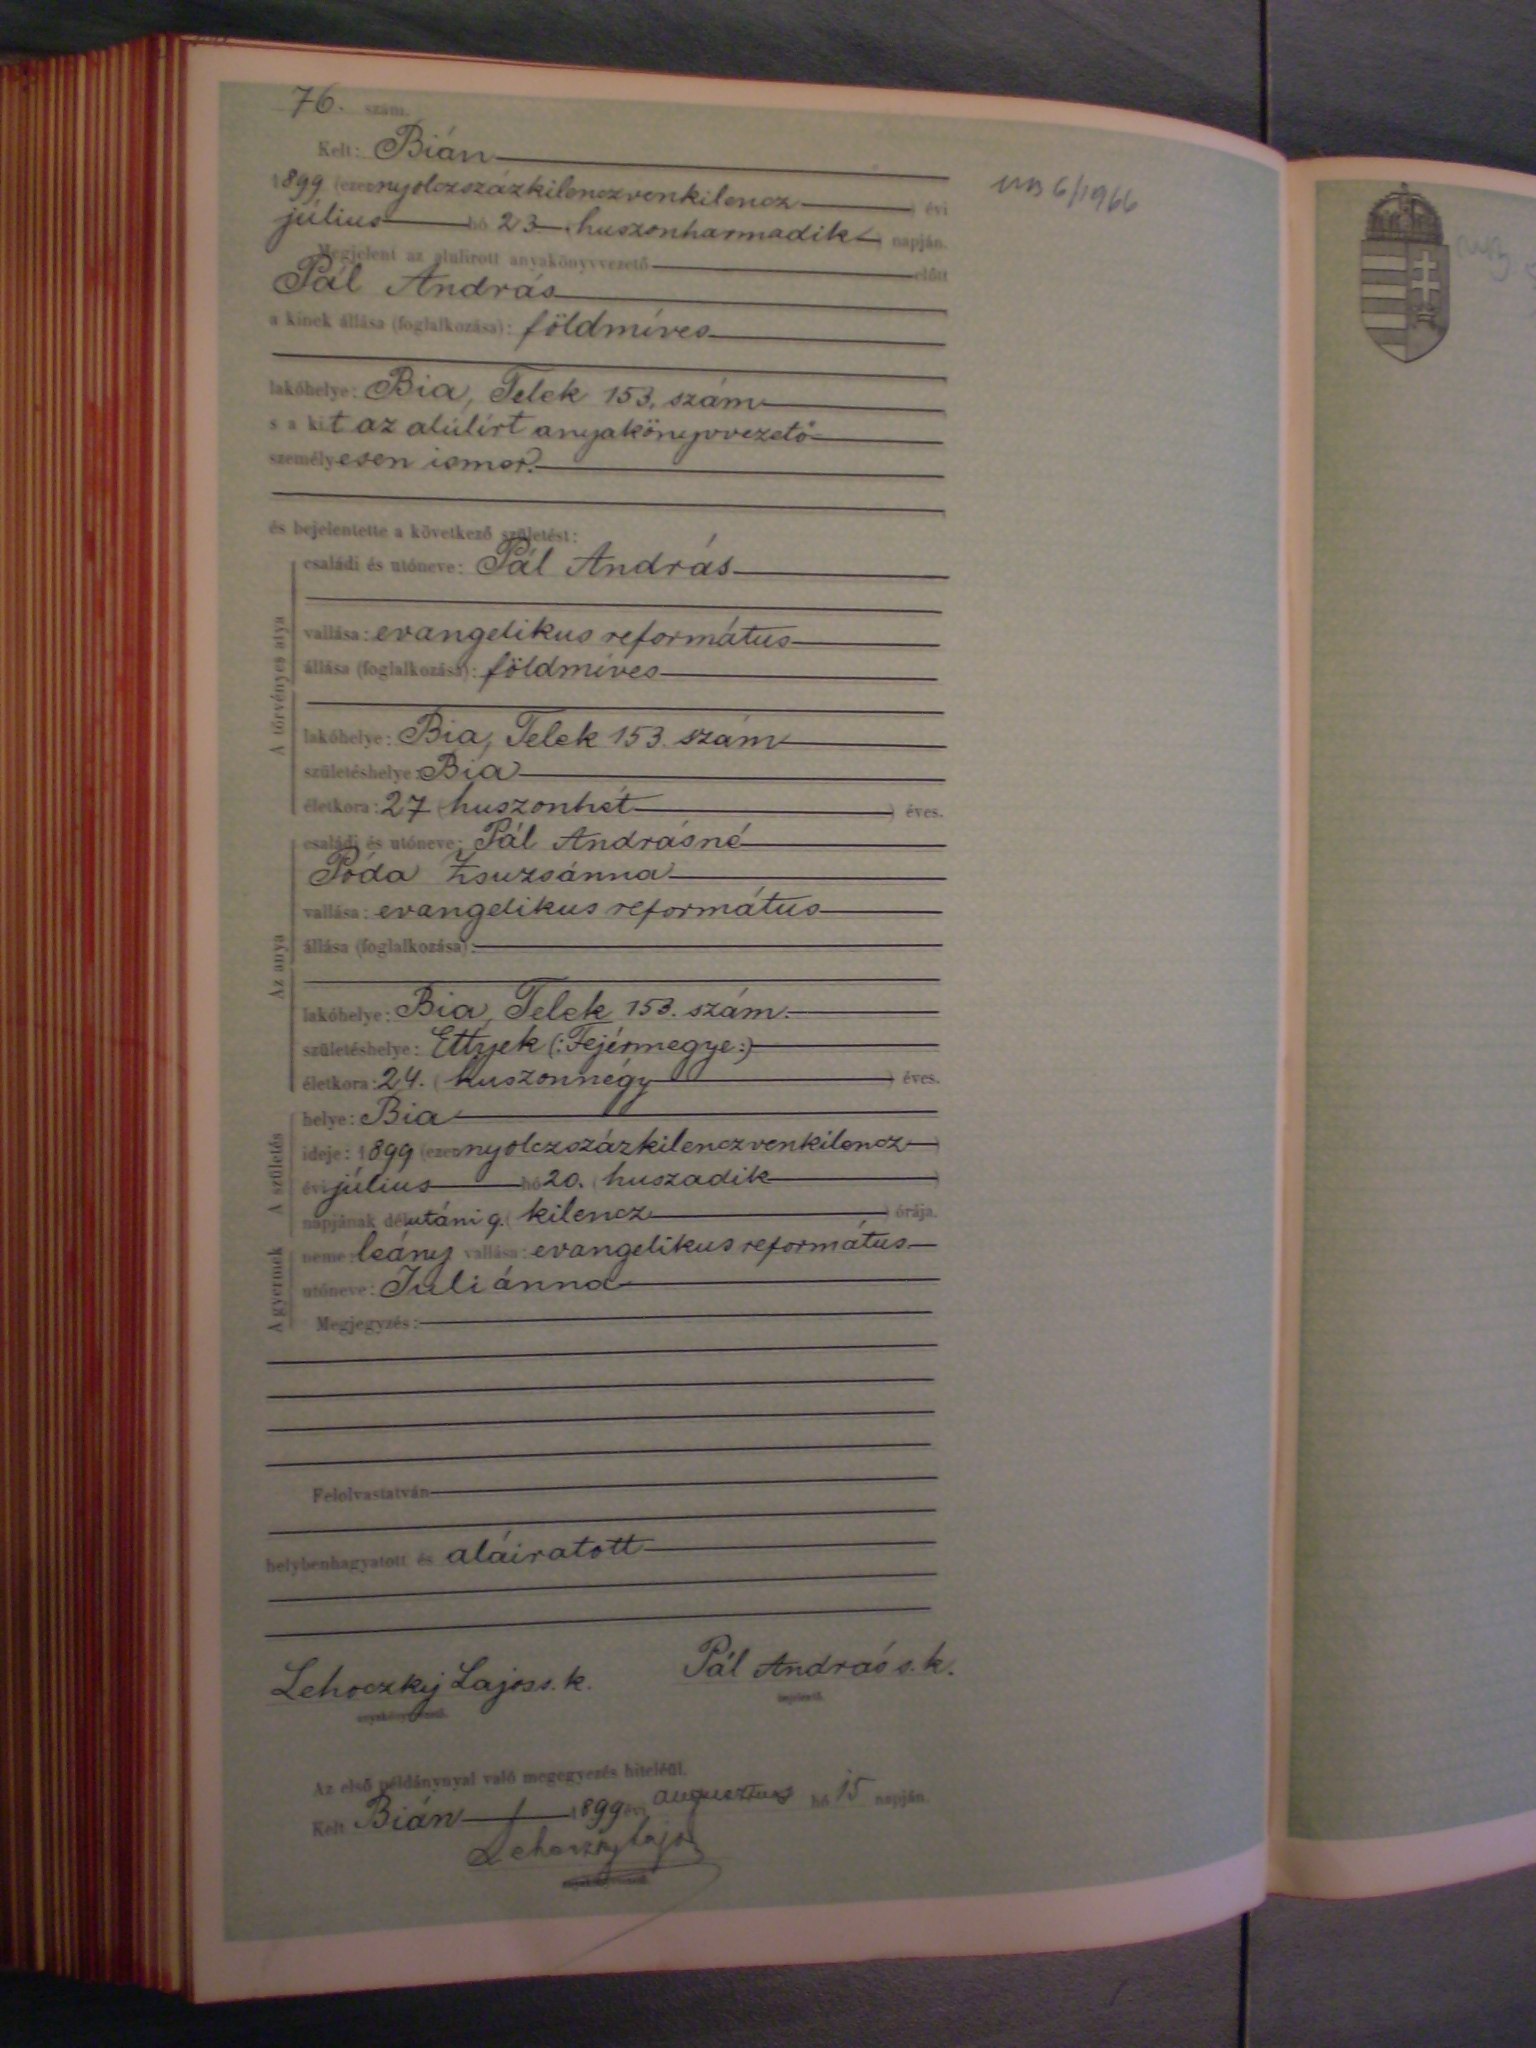 76. szám.
Kelt: Bián
1899 (ezernyolczszázkilenczvenkilencz) évi
július hó 23. (huszonharmadik) napján.
UB 6/1966
Megjelent az alulirott anyakönyvvezető előtt
Pál András
a kinek állása (foglalkozása): földmíves
lakóhelye: Bia, Telek 153. szám
s a kit az alúlírt anyakönyvvezető
személyesen ismer.
és bejelentette a következő születést:
A törvényes atya
családi és utóneve: Pál András
vallása: evangelikus református
állása (foglalkozása): földmíves
lakóhelye: Bia, Telek 153. szám
születéshelye: Bia
életkora: 27 (huszonhét) éves.
Az anya
családi és utóneve: Pál Andrásné
Póda Zsuzsánna
vallása: evangelikus református
állása (foglalkozása):
lakóhelye: Bia, Telek 153. szám.
születéshelye: Ettyek (:Fejérmegye:)
életkora: 24. (huszonnégy) éves.
A születés
helye: Bia
ideje: 1899 (ezernyolczszázkilenczvenkilencz)
évi július hó 20. (huszadik)
napjának délutáni 9. (kilencz) órája.
A gyermek
neme: leány vallása: evangelikus református
utóneve: Juliánna
Megjegyzés:
Felolvastatván
helybenhagyatott és aláíratott
Lehoczky Lajos s. k. Pál András s. k.
anyakönyvvezető. bejelentő.
Az első példánynyal való megegyezés hiteléül.
Kelt Bián 1899 évi augusztus hó 15 napján.
Lehoczky Lajos